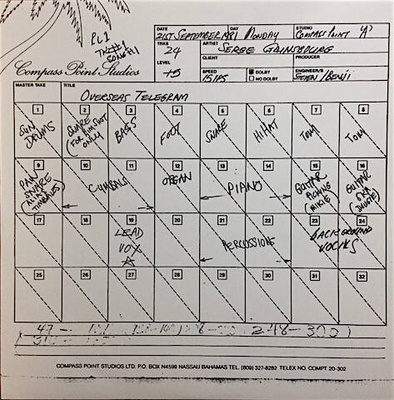 RL 1
Compass Point Studios
DATE 21ST SEPTEMBER 1981
DAY MONDAY
STUDIO COMPASS POINT 'A'
TRKS 24
ARTIST SERGE GAINSBOURG
CLIENT
PRODUCER
LEVEL +3
SPEED 15 IPS
DOLBY
NO DOLBY
ENGINEER/S STEVEN / BENJI
MASTER TAKE
TITLE
OVERSEAS TELEGRAM
1 2 3 4 5 6 7 8
DRUMS
SNARE (FOR RIM SHOT ONLY)
BASS
FOOT
SNARE
HI HAT
TOM
TOM
9 10 11 12 13 14 15 16
SNARE
CYMBALS
ORGAN
PIANO
GUITAR
GUITAR
17 18 19 20 21 22 23 24
LEAD VOX
PERCUSSIONS
BACKGROUND VOCALS
25 26 27 28 29 30 31 32
COMPASS POINT STUDIOS LTD. P.O. BOX N4599 NASSAU BAHAMAS TEL. (809) 327-8282 TELEX NO. COMPT 20-302